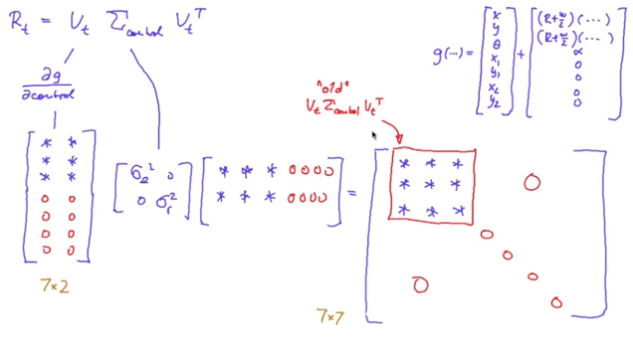 R_t = V_t Σ_control V_t^T
∂g
∂control
g(...) = [x y θ x_1 y_1 x_2 y_2] + [(R+w/2)(...) (R+w/2)(...) α 0 0 0 0]
"old"
V_t Σ_control V_t^T
[* * ; * * ; * * ; 0 0 ; 0 0 ; 0 0 ; 0 0] [σ_l^2 0 ; 0 σ_r^2] [* * * 0 0 0 0 ; * * * 0 0 0 0] = [* * * ; * * * ; * * * 0 0 0 0 0 0]
7×2
7×7